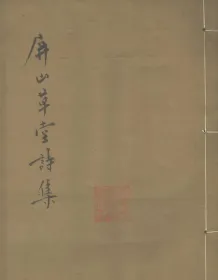 屏山草堂詩集